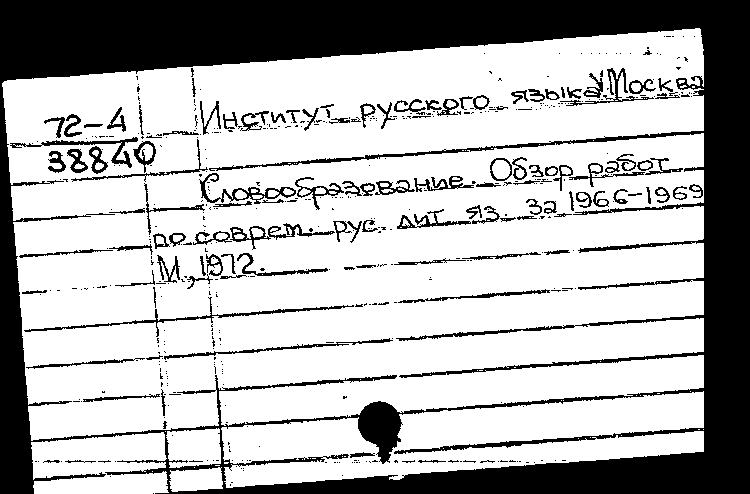 72-4
38840
Институт русского языка. Москва
Словообразование. Обзор работ
по соврем. рус. лит. яз. за 1966-1969
М., 1972.